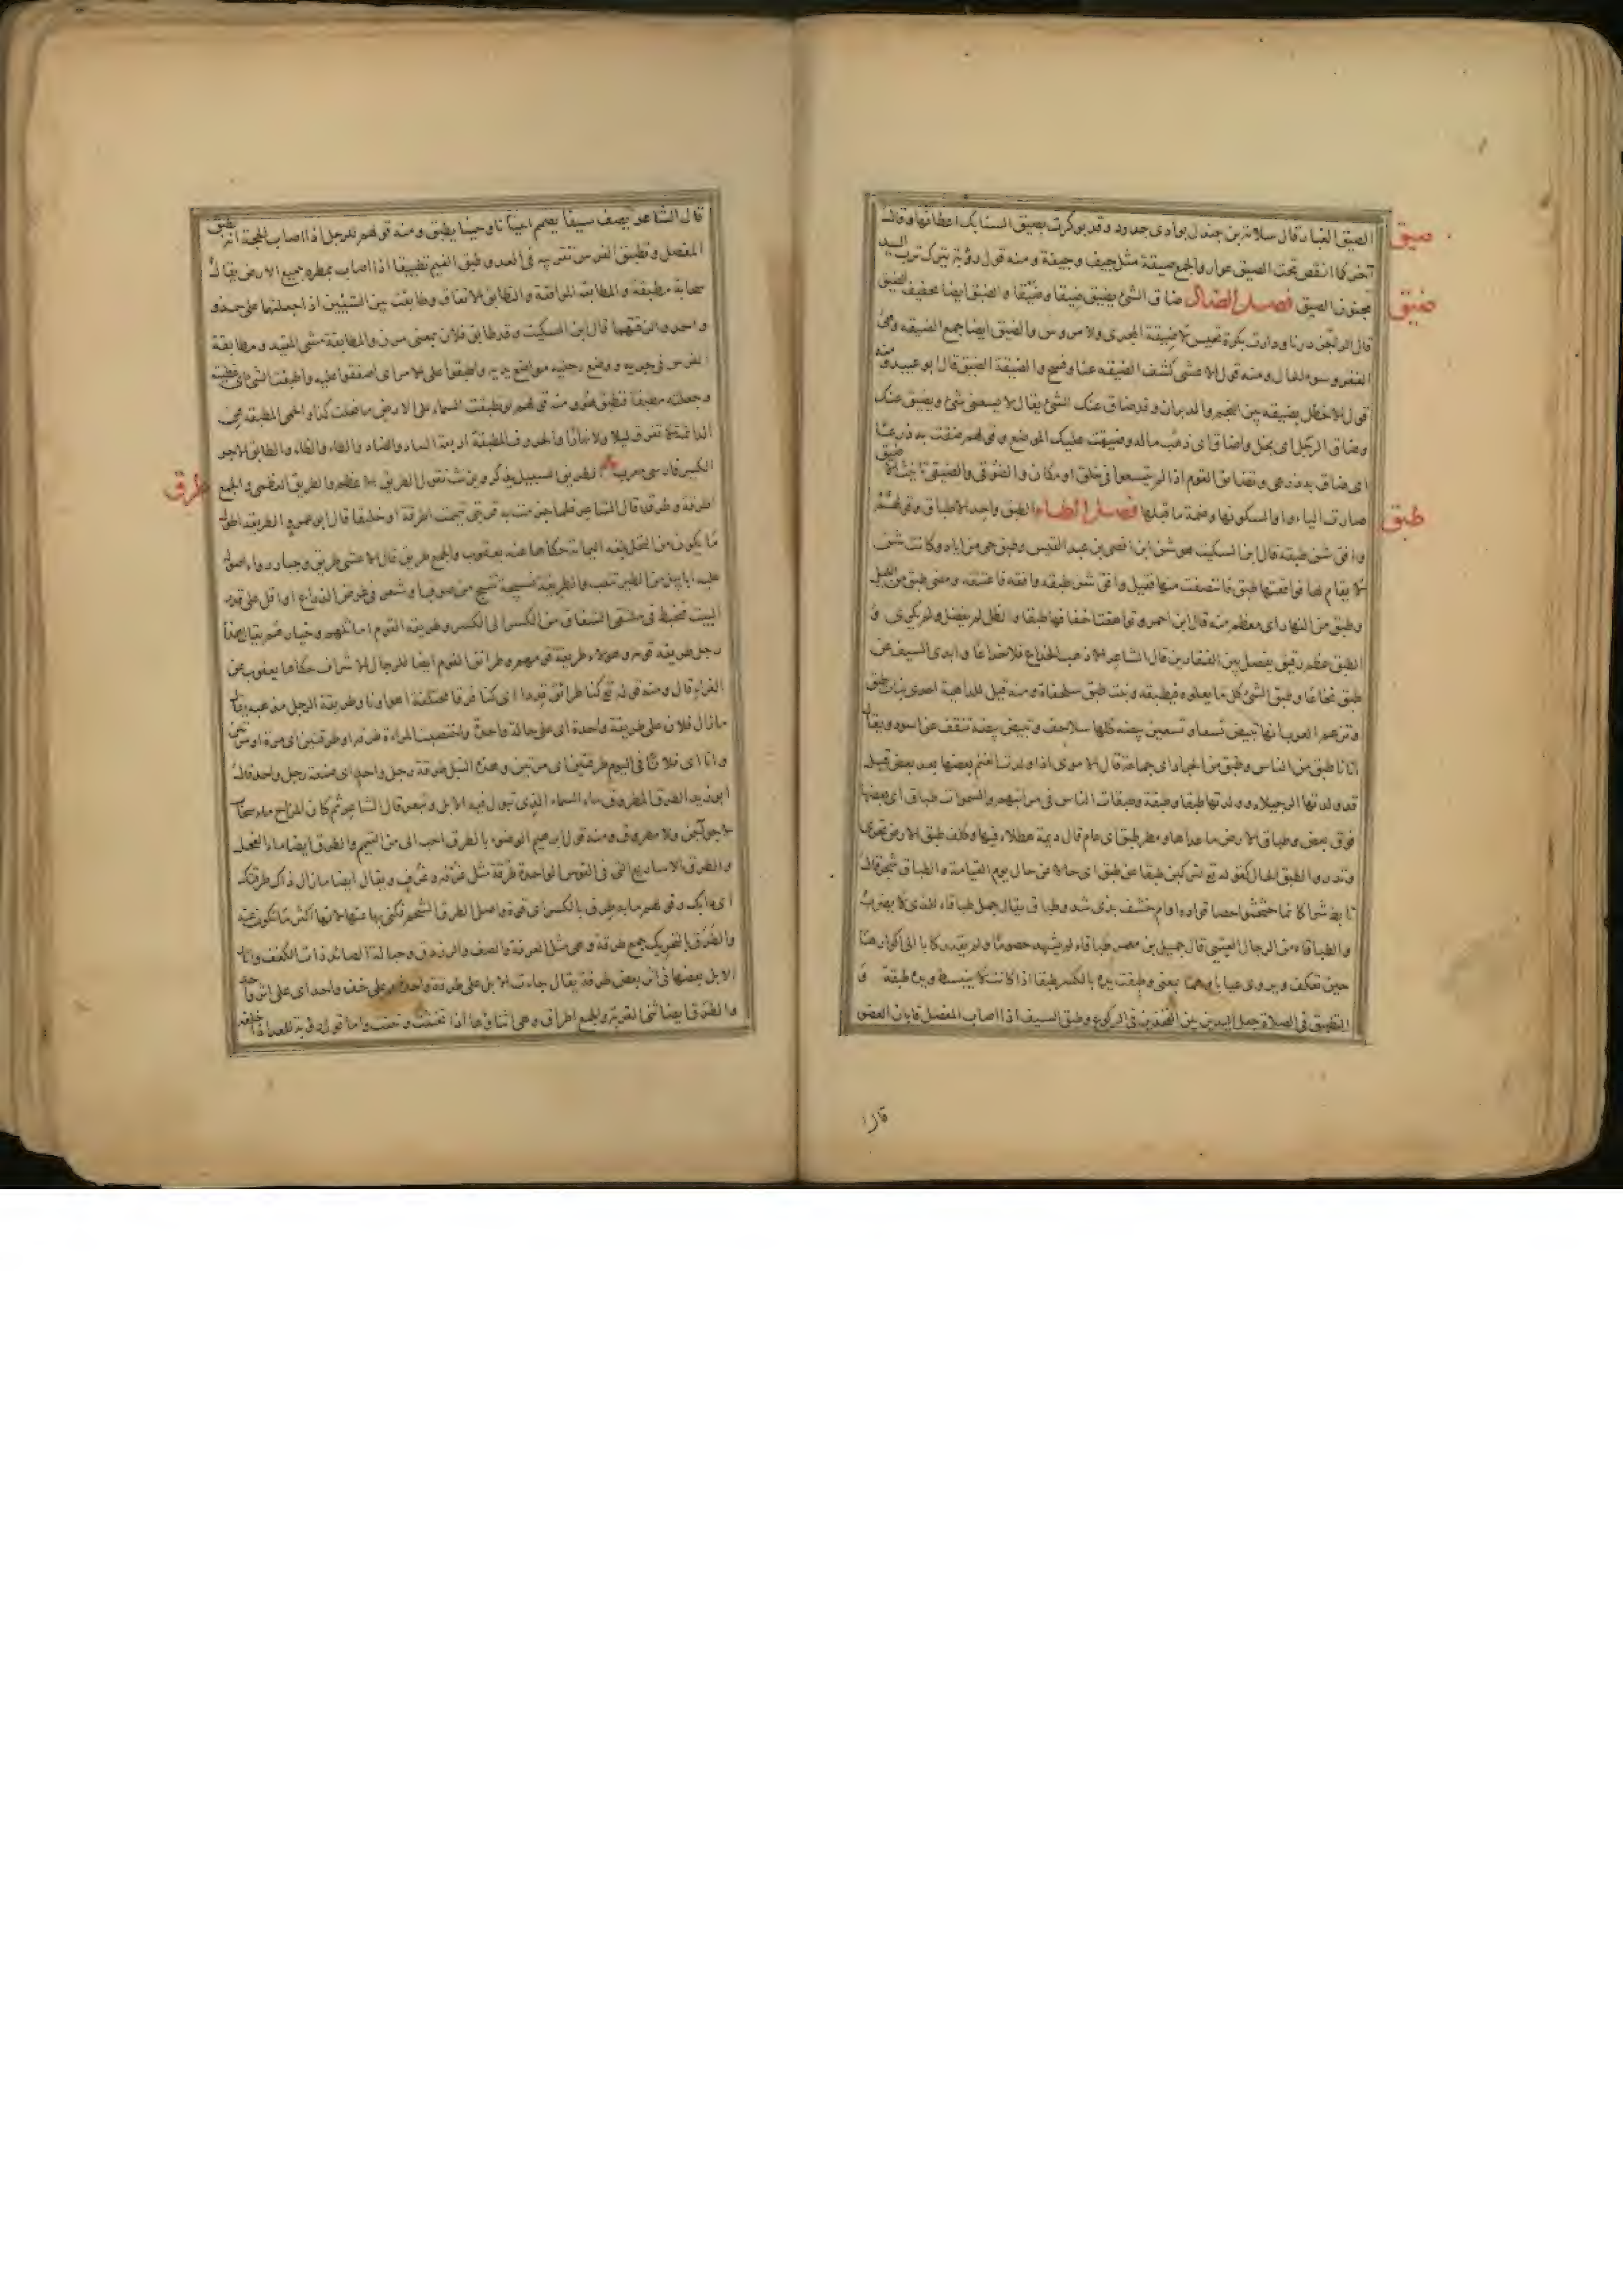 صيق
الصيق الغبار قال سلامة بن جندل بوادى جدود وقد بوكرت بصيق السنابك اعطافها وقال
آخر كما انقض تحت الصيق عوار والجمع صيقة مثل جيف وجيفة ومنه قول رؤبة يتركن ترب البيد
مجنون الصيق فصل الضاد ضاق الشئ يضيق ضيقا وضيّقا والضيق ايضا تخفيف الضيق
ضيق
قال الراجز درنا ودارت بكرة نخيس لا ضيقة المجرى ولا مروس والضيق ايضا جمع الضيقه وهى
الفقر وسوء الحال ومنه قول الاعشى كشف الضيقه عنا وفسح والضيقة الضيق قال ابو عبيد ومنه
قول الاخطل بضيقه بين النجم والدبران وقد ضاق عنك الشئ يقال لا يسعنى شئ ويضيق عنك
وضاق الرجل اى بخل واضاق اى ذهب ماله وضيقت عليك الموضع وقولهم ضقت به ذرعا
اى ضاق به ذرعى وتضايق القوم اذا لم يتسعوا فى خلق او مكان والضوقى والضيقى تانيث الاضيق
صارت الياء واوا لسكونها وضمة ما قبلها فصل الطاء الطبق واحد الاطباق وقولهم
طبق
وافق شن طبقه قال ابن السكيت هو شن ابن افصى بن عبد القيس وطبق حى من اياد وكانت شن
لا يقام لها فواقعتها طبق فانتصفت منها فقيل وافق شن طبقه وافقه فاعتنقه ومضى طبق من الليل
وطبق من النهار اى معظم منه قال ابن احمر وتواهقت اخفافها طبقا والظل لم يفضل ولم يكرى و
الطبق عظم رقيق يفصل بين الفقارين قال الشاعر الا ذهب الخداع فلا خداعا وابدى السيف عن
طبق نخاعا وطبق الشئ كل ما يعلوه فيطبقه وبنت طبق سلحفاة ومنه قيل للداهية احدى بنات طبق
وتزعم العرب انها تبيض تسعا وتسعين بيضه كلها سلاحف وتبيض بيضة تنقف عن اسود ويقال
اتانا طبق من الناس وطبق من الجراد اى جماعة قال الاموى اذا ولدت الغنم بعضها بعد بعض قيل
قد ولدتها الرجيلاء وولدتها طبقا وطبقة وطبقات الناس فى مراتبهم والسموات طباق اى بعضها
فوق بعض وطباق الارض ما علاها ومطر طبق اى عام قال ديمة هطلاء فيها وطف طبق الارض تحرى
وتدر والطبق الحال كقوله تع لتركبن طبقا عن طبق اى حالا عن حال يوم القيامة والطباق شجر قال
تابط شرا كانما حثحثوا حصا قوادمه او ام خشف بذى شث وطباق يقال جمل طباقاء للذى لا يضرب
والطباقاء من الرجال العيىّ قال جميل بن معمر طباقاء لم يشهد خصوما ولم يقد ركابا الى اكوارها
حين تعكف ويروى عياياء وهما بمعنى وطبقت يده بالكسر طبقا اذا كانت لا ينبسط ويده طبقة و
التطبيق فى الصلاة جعل اليدين بين الفخذين فى الركوع وطبق السيف اذا اصاب المفصل فابان العضو
قال
قال الشاعر يصف سيفا يصمم احيانا وحينا يطبق ومنه قولهم للرجل اذا اصاب الحجة انه يطبق
المفصل وتطبيق الفرس تقريبه فى العدو وطبق الغيم تطبيقا اذا اصاب بمطره جميع الارض يقال
سحابة مطبقة والمطابقة الموافقة والتطابق الاتفاق وطابقت بين الشيئين اذا جعلتهما على حذو
واحد والزقتهما قال ابن السكيت وقد طابق فلان بمعنى مرن والمطابقة مشى المقيد ومطابقة
الفرس فى جريه ووضع رجليه مواضع يديه واطبقوا على الامر اى اصفقوا عليه واطبقت الشئ اى غطيته
وجعلته مطبقا فتطبق هو ومنه قولهم لو تطبقت السماء على الارض ما فعلت كذا والحمى المطبقة هى
الدائمة لا تفارق ليلا ولا نهارا والحروف المطبقة اربعة الصاد والضاد والطاء والظاء والطابق الآجر
الكبير فارسى معرب الطريق السبيل يذكر ويؤنث تقول الطريق الاعظم والطريق العظمى والجمع
طرق
اطرقة وطرق قال الشاعر فلما جزمت به قربتى تيممت اطرقة او خليفا قال ابو عمرو الطريقة اطول
ما يكون من النخل بلغه اليمامة حكاها عنه يعقوب والجمع طريق قال الاعشى طريق وجبار رواء اصوله
عليه ابابيل من الطير تنعب والطريقة نسيجة تنسج من صوف او شعر فى عرض الذراع او اقل على قدر
البيت فتخيط فى ملتقى الشقاق من الكسر الى الكسر وطريقة القوم اماثلهم وخيارهم يقال هذا
رجل طريقة قومه وهؤلاء طريقة قومهم وطرائق القوم ايضا للرجال الاشراف حكاها يعقوب عن
الفراء قال ومنه قوله تع كنا طرائق قددا اى كنا فرقا مختلفة اهواؤنا وطريقة الرجل مذهبه يقال
ما زال فلان على طريقة واحدة اى على حالة واحدة واختضبت المراة طرقا او طرقتين اى مرة او مرتين
وانا آتى فلانا فى اليوم طرقتين اى مرتين وهذه النبل طرقة رجل واحد اى صنعة رجل واحد قال
ابو زيد الطرق المطروق ماء السماء الذى تبول فيه الابل وتبعر قال الشاعر ثم كان المزاج ماء سحاب
لا جو آجن ولا مطروق ومنه قول ابرهيم الوضوء بالطرق احب الى من التيمم والطرق ايضا ماء الفحل
والطرق الاساريع التى فى القوس الواحدة طرقة مثل غرفه وغرف ويقال ايضا ما زال ذاك طرقتك
اى دابك وقولهم ما به طرق بالكسر اى قوة واصل الطرق الشحم فكنى بها عنها لانها اكثر ما تكون عنه
والطرق بالتحريك جمع طرقة وهى مثل العرقة والصف والرزدق وحبالة الصائد ذات الكفف واثار
الابل بعضها فى اثر بعض طرقة يقال جاءت الابل على طرقة واحدة وعلى خف واحد اى على اثر واحد
والطرق ايضا ثنى القربة والجمع اطراق وهى اثناؤها اذا تخنثت وتثنت واما قول رؤبة للعد اذ اخلفه